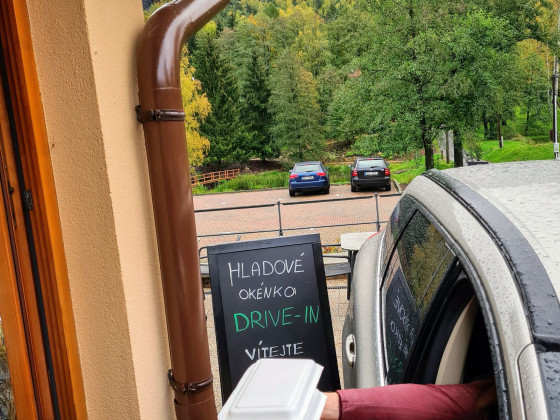 HLADOVÉ
OKÉNKO!
DRIVE-IN
VÍTEJTE